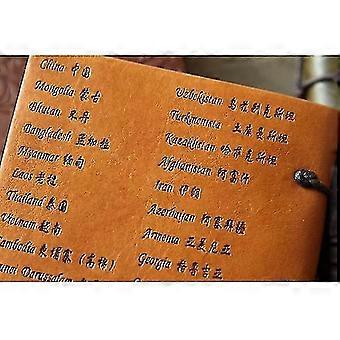 China 中国
Mongolia 蒙古
Bhutan 不丹
Bangladesh 孟加拉
Myanmar 缅甸
Laos 老挝
Thailand 泰国
Vietnam 越南
Cambodia 柬埔寨（高棉）
Darussalam
Uzbekistan 乌兹别克斯坦
Turkmenista 土库曼斯坦
Kazakhstan 哈萨克斯坦
Afghanistan 阿富汗
Iran 伊朗
Azerbaijan 阿塞拜疆
Armenia 亚美尼亚
Georgia 格鲁吉亚